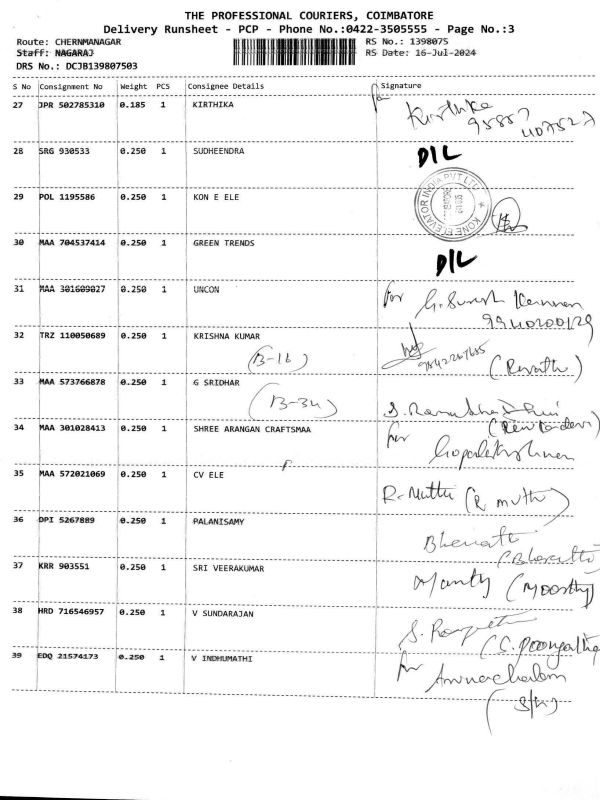 THE PROFESSIONAL COURIERS, COIMBATORE
Delivery Runsheet - PCP - Phone No.:0422-3505555 - Page No.:3
Route: CHERNMANAGAR RS No.: 1398075
Staff: NAGARAJ RS Date: 16-Jul-2024
DRS No.: DCJB139807503
S No Consignment No Weight PCS Consignee Details Signature
27 JPR 502785310 0.185 1 KIRTHIKA Kirthika
95857
407527
28 SRG 930533 0.250 1 SUDHEENDRA D/L
29 POL 1195586 0.250 1 KON E ELE KONE ELEVATOR INDIA PVT LTD
30 MAA 704537414 0.250 1 GREEN TRENDS D/L
31 MAA 301609027 0.250 1 UNCON for G. Suresh Kannan
9940200129
32 TRZ 110050689 0.250 1 KRISHNA KUMAR
(B-16) 9842267685 (Revathi)
33 MAA 573766878 0.250 1 G SRIDHAR
(B-34)
34 MAA 301028413 0.250 1 SHREE ARANGAN CRAFTSMAA for Gopalakrishnan
35 MAA 572021069 0.250 1 CV ELE R. Muthu (R muthu)
36 DPI 5267889 0.250 1 PALANISAMY Bharathi
(Bharathi)
37 KRR 903551 0.250 1 SRI VEERAKUMAR (Moorthy)
38 HRD 716546957 0.250 1 V SUNDARAJAN
39 EDQ 21574173 0.250 1 V INDHUMATHI for Arunachalam